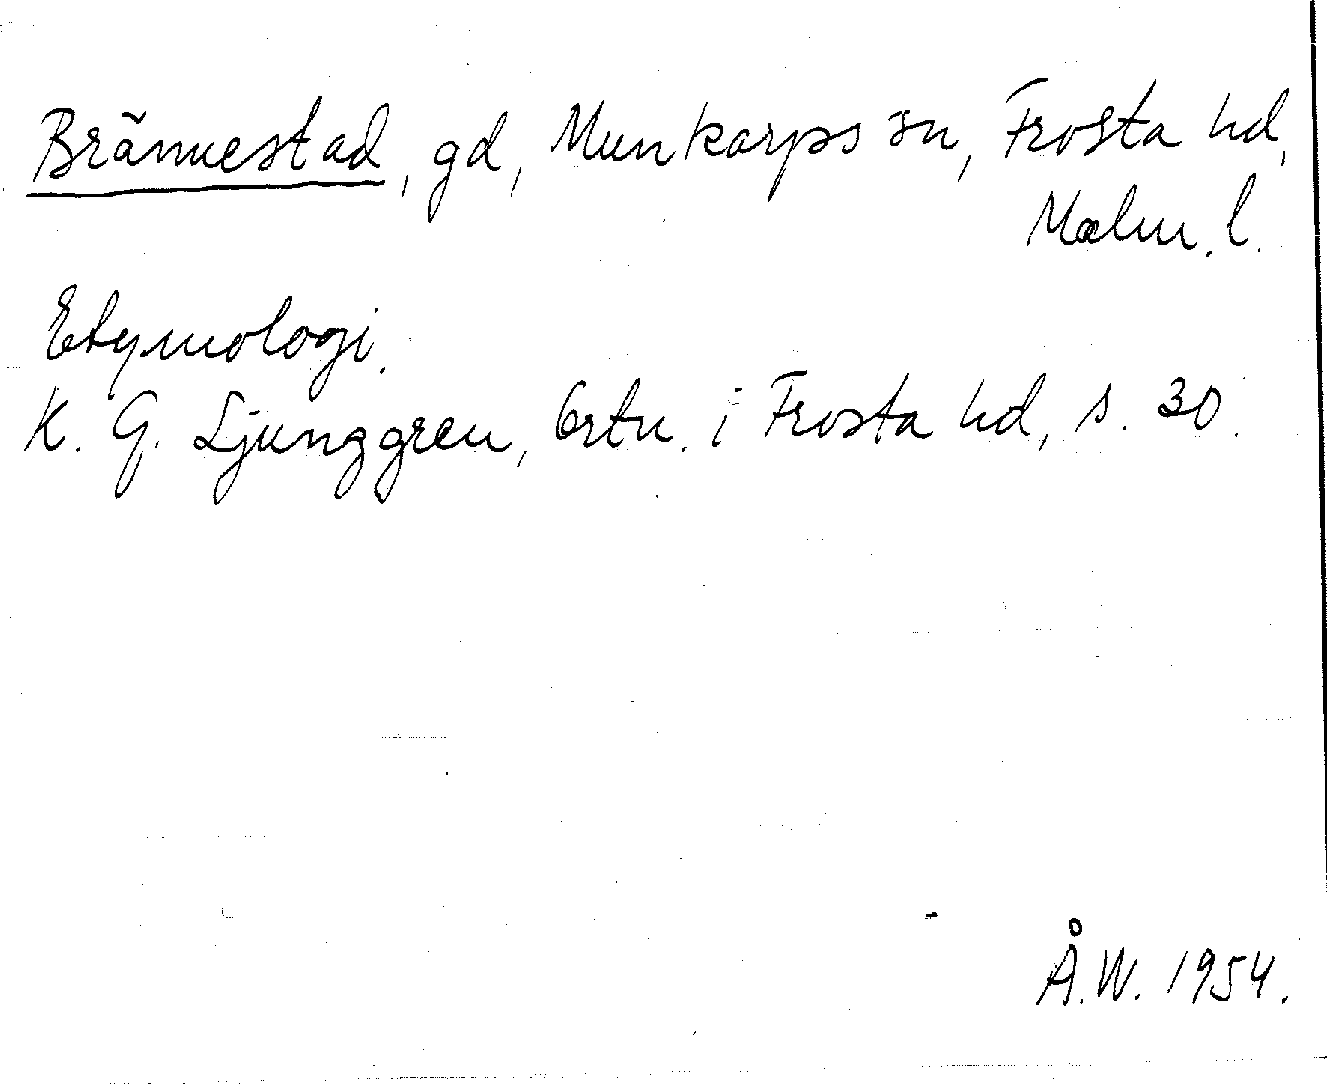 Brännestad, gd, Munkarps sn, Frosta hd,
Malm. l.
Etymologi.
K. G. Ljunggren, Ortn. i Frosta hd, s. 30.
Å.W. 1954.